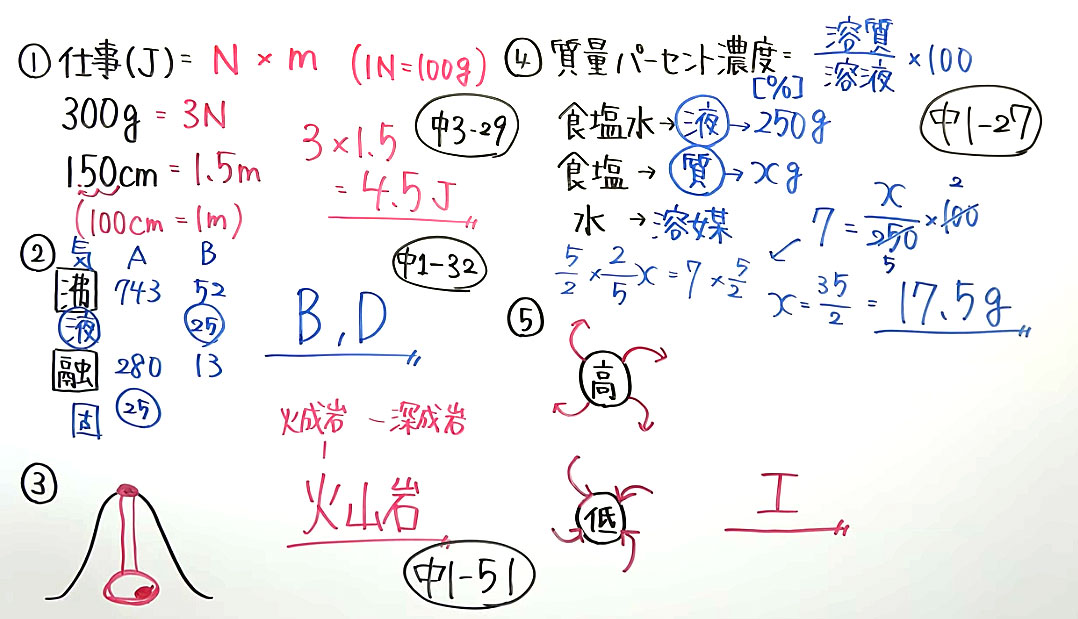 ① 仕事(J) = N × m (1N=100g)
300g = 3N
150cm = 1.5m
(100cm = 1m)
3×1.5
= 4.5J
中3-29
② 気 A B
沸 743 52
液 25
融 280 13
固 25
B, D
中1-32
③
火成岩 - 深成岩
火山岩
中1-51
④ 質量パーセント濃度= 溶質/溶液 ×100
[%]
食塩水→液→250g
食塩→質→xg
水→溶媒
中1-27
7 = x/250 ×100
2
5
5/2 × 2/5 x = 7 × 5/2
x = 35/2 = 17.5g
⑤
高
低
エ